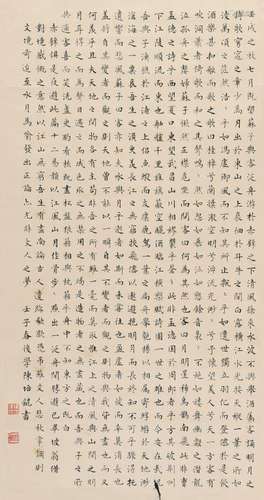 壬戌之秋七月既望蘇子與客泛舟游於赤壁之下清風徐來水波不興舉酒屬客誦明月之
詩歌窈窕之章少焉月出於東山之上徘徊於斗牛之間白露橫江水光接天縱一葦之所如
凌萬頃之茫然浩浩乎如馮虛御風而不知其所止飄飄乎如遺世獨立羽化而登僊於是飲
酒樂甚扣舷而歌之歌曰桂棹兮蘭槳擊空明兮泝流光渺渺兮予懷望美人兮天一方客有
吹洞簫者倚歌而和之其聲嗚嗚然如怨如慕如泣如訴餘音嫋嫋不絕如縷舞幽壑之潛蛟
泣孤舟之嫠婦蘇子愀然正襟危坐而問客曰何為其然也客曰月明星稀烏鵲南飛此非曹
孟德之詩乎西望夏口東望武昌山川相繆鬱乎蒼蒼此非孟德之困於周郎者乎方其破荊州
下江陵順流而東也舳艫千里旌旗蔽空釃酒臨江橫槊賦詩固一世之雄也而今安在哉況
吾與子漁樵於江渚之上侶魚蝦而友麋鹿駕一葉之扁舟舉匏樽以相屬寄蜉蝣於天地渺
滄海之一粟哀吾生之須臾羨長江之無窮挾飛仙以遨遊抱明月而長終知不可乎驟得託
遺響於悲風蘇子曰客亦知夫水與月乎逝者如斯而未嘗往也盈虛者如彼而卒莫消長也
蓋將自其變者而觀之則天地曾不能以一瞬自其不變者而觀之則物與我皆無盡也而又
何羨乎且夫天地之間物各有主苟非吾之所有雖一毫而莫取惟江上之清風與山間之明
月耳得之而為聲目遇之而成色取之無禁用之不竭是造物者之無盡藏也而吾與子之所
共適客喜而笑洗盞更酌肴核既盡杯盤狼藉相與枕藉乎舟中不知東方之既白
壬子春後學陳培錕書